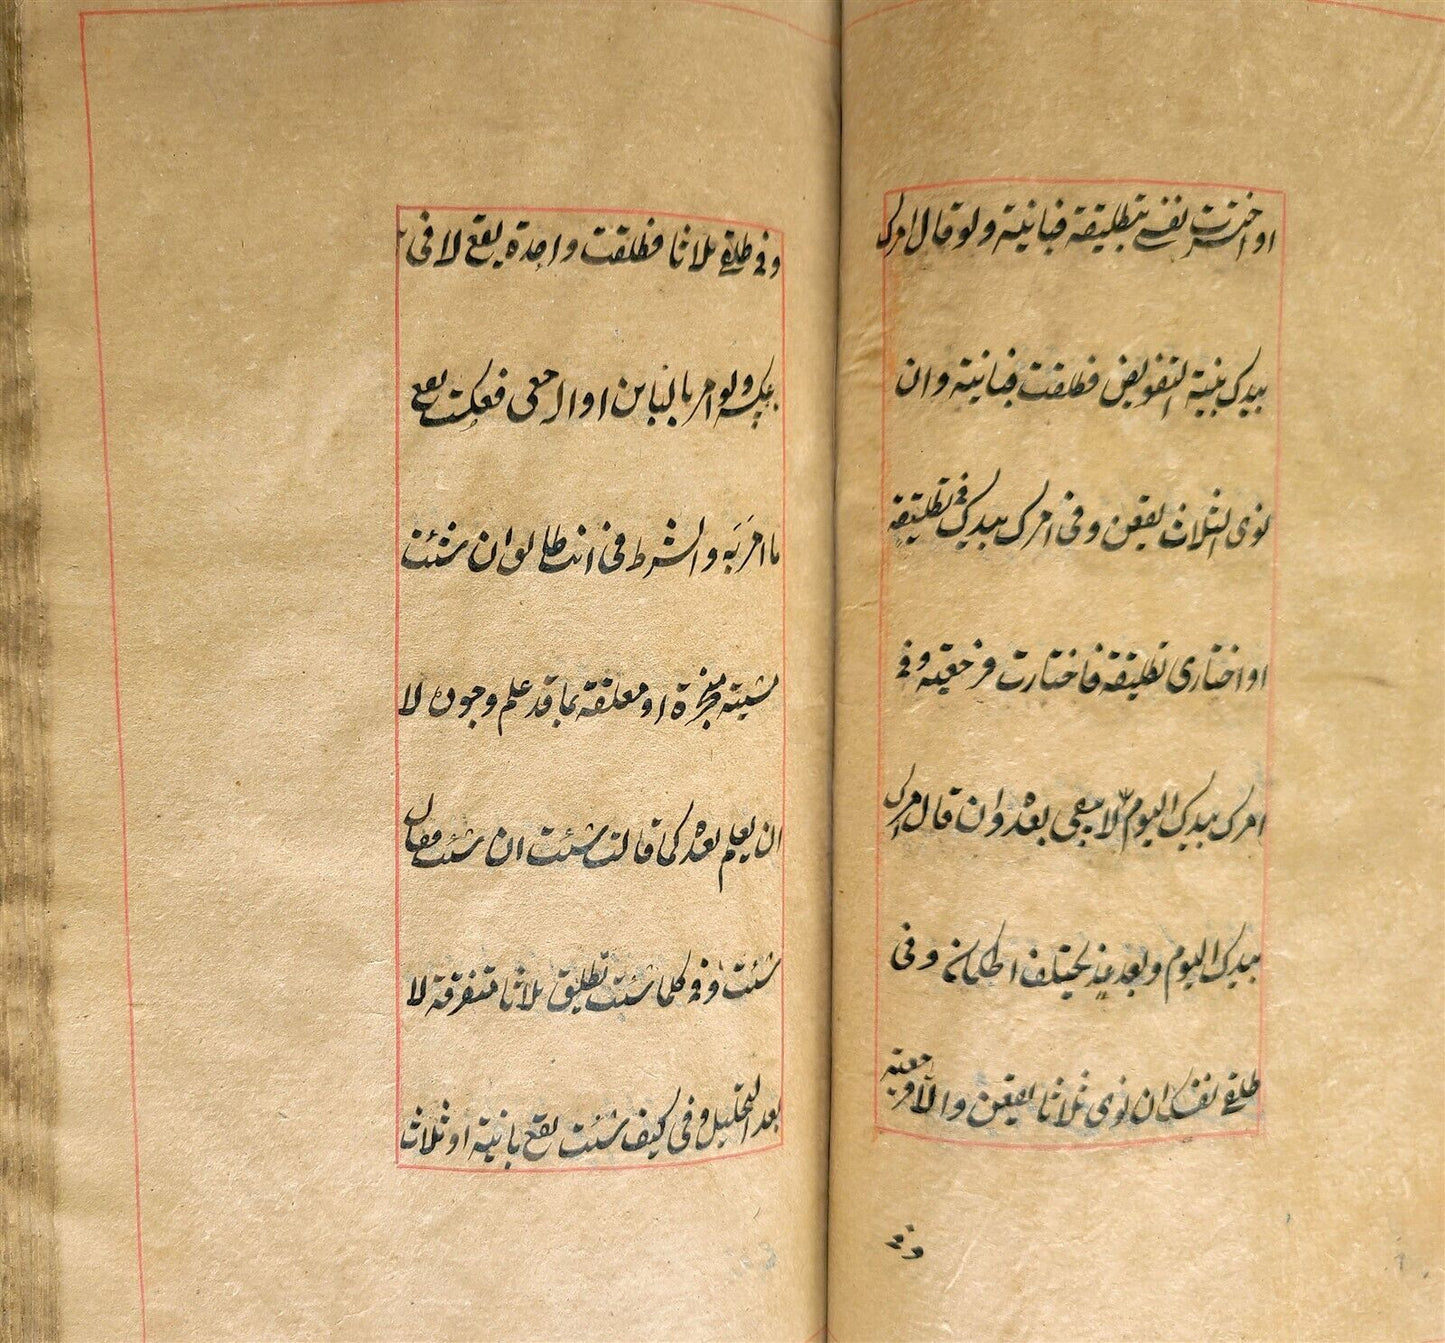 او اخترت نفسي بتطليقة فبانية ولو قال امرك
بيدك بنية التفويض فطلقت فبانية وان
نوى الثلاث يقعن وفى امرك بيدك فى تطليقة
او اختارى تطليقة فاختارت فرجعية وفى
امرك بيدك اليوم لا يبقى بعده وان قال امرك
بيدك اليوم وبعد غد يختلف الحكمان وفى
طلقى نفسك ان نوى ثلاثا يقعن والا فرجعية
وفى
وفى طلقى ثلاثا فطلقت واحدة يقع لا فى
عكسه ولو امر بالباين او الرجعى فعكست يقع
ما امر به والشرط فى انت طالق ان شئت
مشيته منجزة او معلقة بما قد علم وجوده لا
ان يعلم بعده كما قالت شئت ان شئت فقال
شئت وفى كلما شئت تطليق ثلاثا متفرقة لا
بعد التحليل وفى كيف شئت يقع بانية او ثلاث